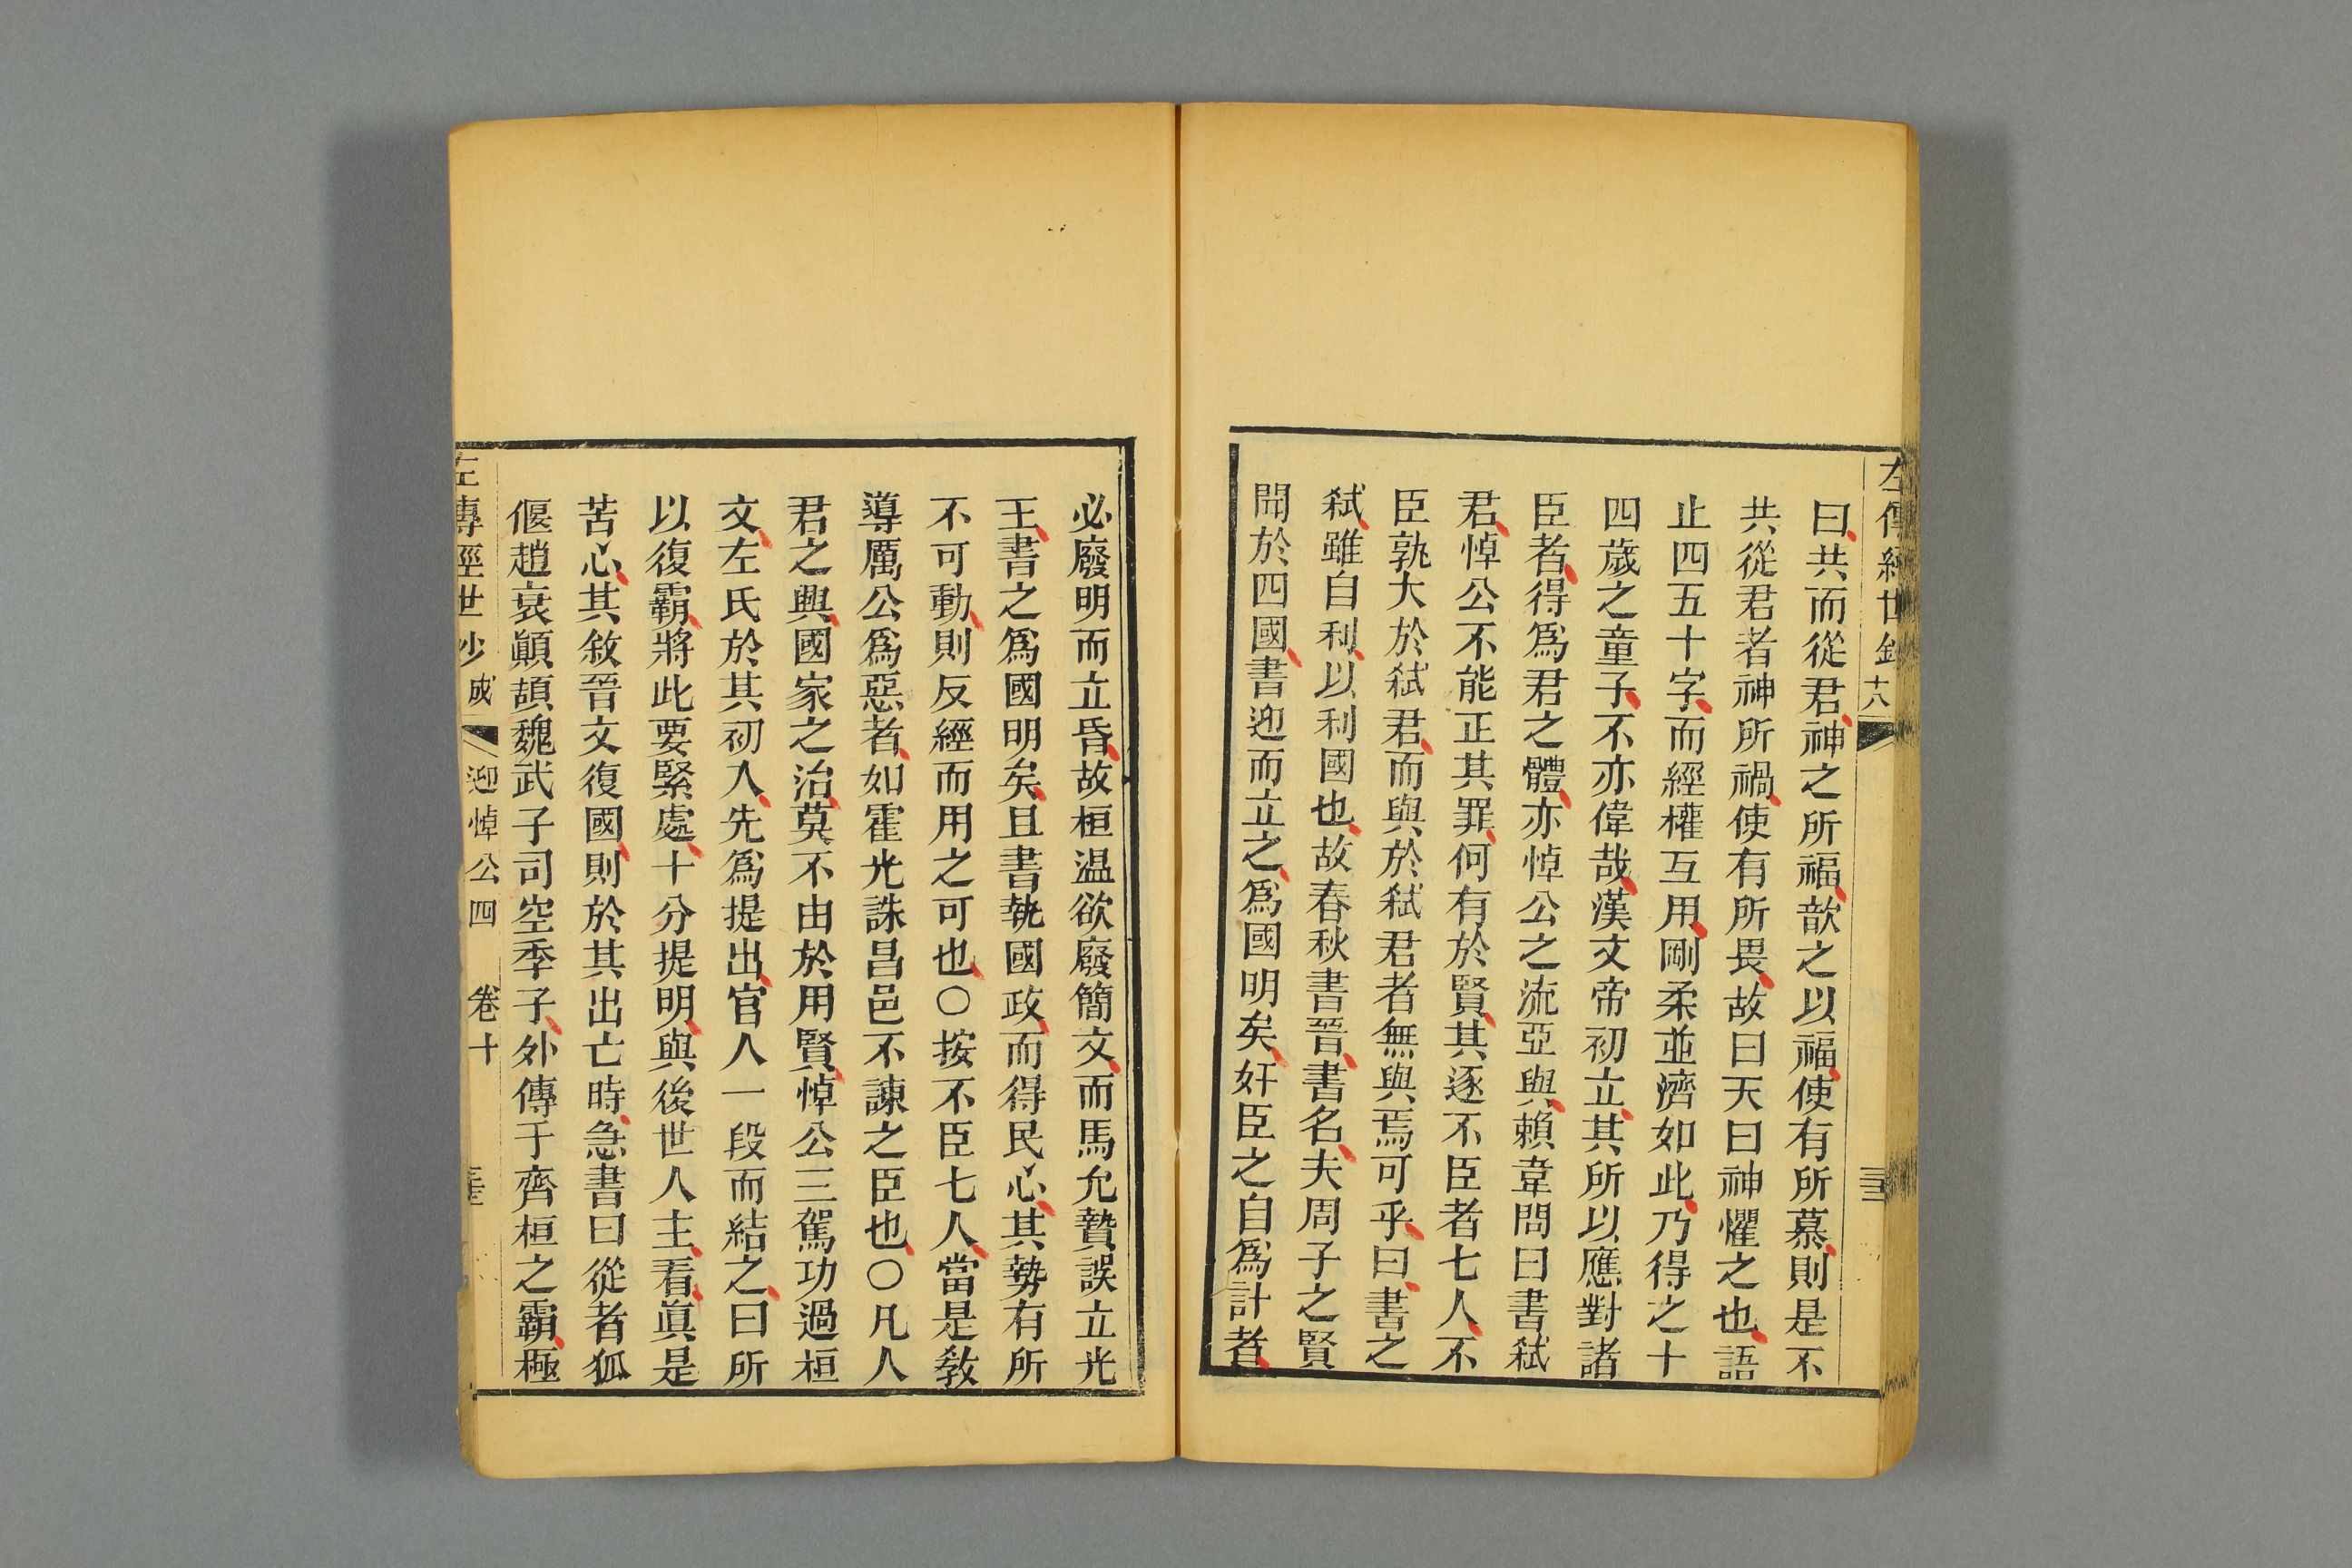 曰共而從君神之所福歆之以福使有所慕則是不
共從君者神所禍使有所畏故曰天曰神懼之也語
止四五十字而經權互用剛柔並濟如此乃得之十
四歲之童子不亦偉哉漢文帝初立其所以應對諸
臣者得爲君之體亦悼公之流亞與賴韋問曰書弑
君悼公不能正其罪何有於賢其逐不臣者七人不
臣孰大於弑君而與於弑君者無與焉可乎曰書之
弑雖自利以利國也故春秋書晉書名夫周子之賢
聞於四國書迎而立之爲國明矣奸臣之自爲計者
必廢明而立昏故桓温欲廢簡文而馬允贊誤立光
王書之爲國明矣且書執國政而得民心其勢有所
不可動則反經而用之可也○按不臣七人當是敎
導厲公爲惡者如霍光誅昌邑不諫之臣也○凡人
君之興國家之治莫不由於用賢悼公三駕功過桓
文左氏於其初入先爲提出官人一段而結之曰所
以復霸將此要緊處十分提明與後世人主看眞是
苦心其敘晉文復國則於其出亡時急書曰從者狐
偃趙衰顚頡魏武子司空季子外傳于齊桓之霸極
左傳經世鈔 成 迎悼公四 卷十